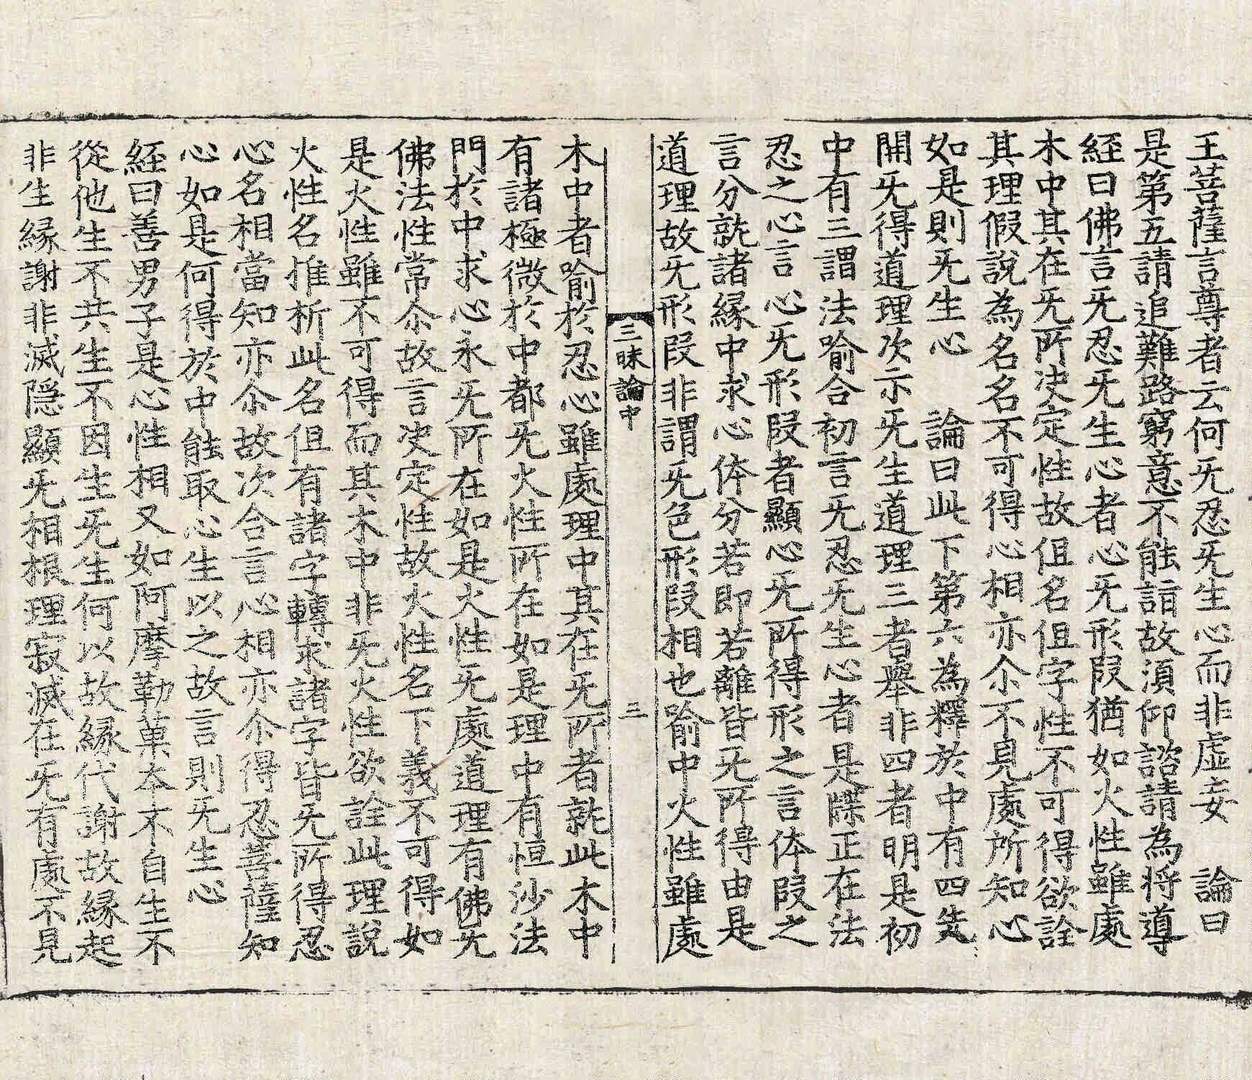 王菩薩言尊者云何旡忍旡生心而非虛妄　論曰
是第五請追難路窮意不能詣故湏仰諮請為將導
経曰佛言旡忍旡生心者心旡形段猶如火性雖處
木中其在旡所决定性故但名但字性不可得欲詮
其理假說為名名不可得心相亦尒不見處所知心
如是則旡生心　論曰此下第六為釋於中有四先
開旡得道理次示旡生道理三者舉非四者明是初
中有三謂法喻合初言旡忍旡生心者是牒正在法
忍之心言心旡形段者顯心旡所得形之言体段之
言分就諸緣中求心体分若即若離皆旡所得由是
道理故旡形段非謂旡色形段相也喻中火性雖處
三昧論中　三
木中者喻於忍心雖處理中其在旡所者就此木中
有諸極微於中都旡火性所在如是理中有恒沙法
門於中求心永旡所在如是火性旡處道理有佛旡
佛法性常尒故言决定性故火性名下義不可得如
是火性雖不可得而其木中非旡火性欲詮此理說
火性名推析此名但有諸字轉求諸字皆旡所得忍
心名相當知亦尒故次合言心相亦尒得忍菩薩知
心如是何得於中能取心生以之故言則旡生心
経曰善男子是心性相又如阿摩勒菓本不自生不
從他生不共生不因生旡生何以故緣代謝故緣起
非生緣謝非滅隱顯旡相根理寂滅在旡有處不見